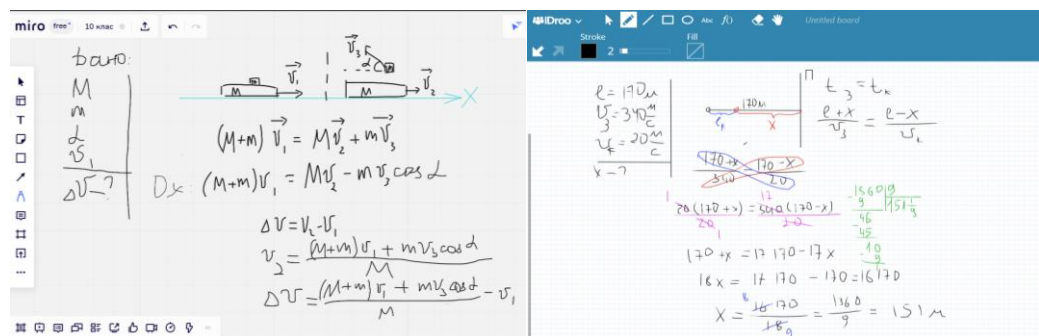 miro free 10 клас
Дано:
M
m
α
v₁
Δv-?
v₃
α
m
M
v₁
M
v₂
X
(M+m)v₁ = Mv₂ + mv₃
Ox: (M+m)v₁ = Mv₂ - mv₃ cos α
Δv = v₂ - v₁
v₂ = (M+m)v₁ + mv₃ cos α / M
Δv = (M+m)v₁ + mv₃ cos α / M - v₁
IDroo Abc f() Untitled board
Stroke Fill
2
ℓ = 170 м
v₃ = 340 м/с
vₖ = 20 м/с
x - ?
170 м
П
ℓₖ
x
t₃ = tₖ
ℓ+x / v₃ = ℓ-x / vₖ
170+x / 340 = 170-x / 20
1 17
20(170+x) / 20 = 340(170-x) / 20
1
170 + x = 17 170 - 17x
18x = 17 170 - 170 = 16 170
x = 16 170 / 18 = 1360 / 9 = 151 м
8
9
1360 | 9
9 151 1/9
46
45
10
9